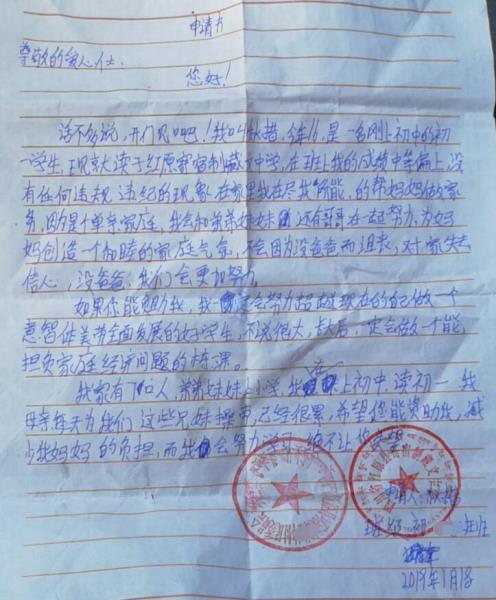 申请书
尊敬的爱心人士
您好！
话不多说，开门见山吧！我叫 措，今年 ，是一名刚上初中的初
一学生，现就读于红原寄宿制藏文中学，在班上我的成绩中等偏上，没
有任何违规违纪的现象。在家里我在尽我所能，的帮妈妈做家
务，因为是个单亲家庭，我会和弟弟妹妹 还有哥哥在一起努力，为妈
妈创造一个和睦的家庭气氛，不会因为没爸爸而沮丧，对家失去
信心，没爸爸，我们会更加努力。
如果你能 我，我一定会努力超越现在的自己做一个
智体美劳全面发展的好学生，不说很大，长大后，一定会做一个能，
担负家庭经济问题的栋梁。
我家有 口人，弟弟妹妹上小学，我 上初中，读初一，我
母亲每天为我们 这些兄妹操劳，已经很累，希望您能资助我，减
少我妈妈的负担，而我会努力学习，绝不让你失望
申请人： 措
班级：初 班
2019年1月18